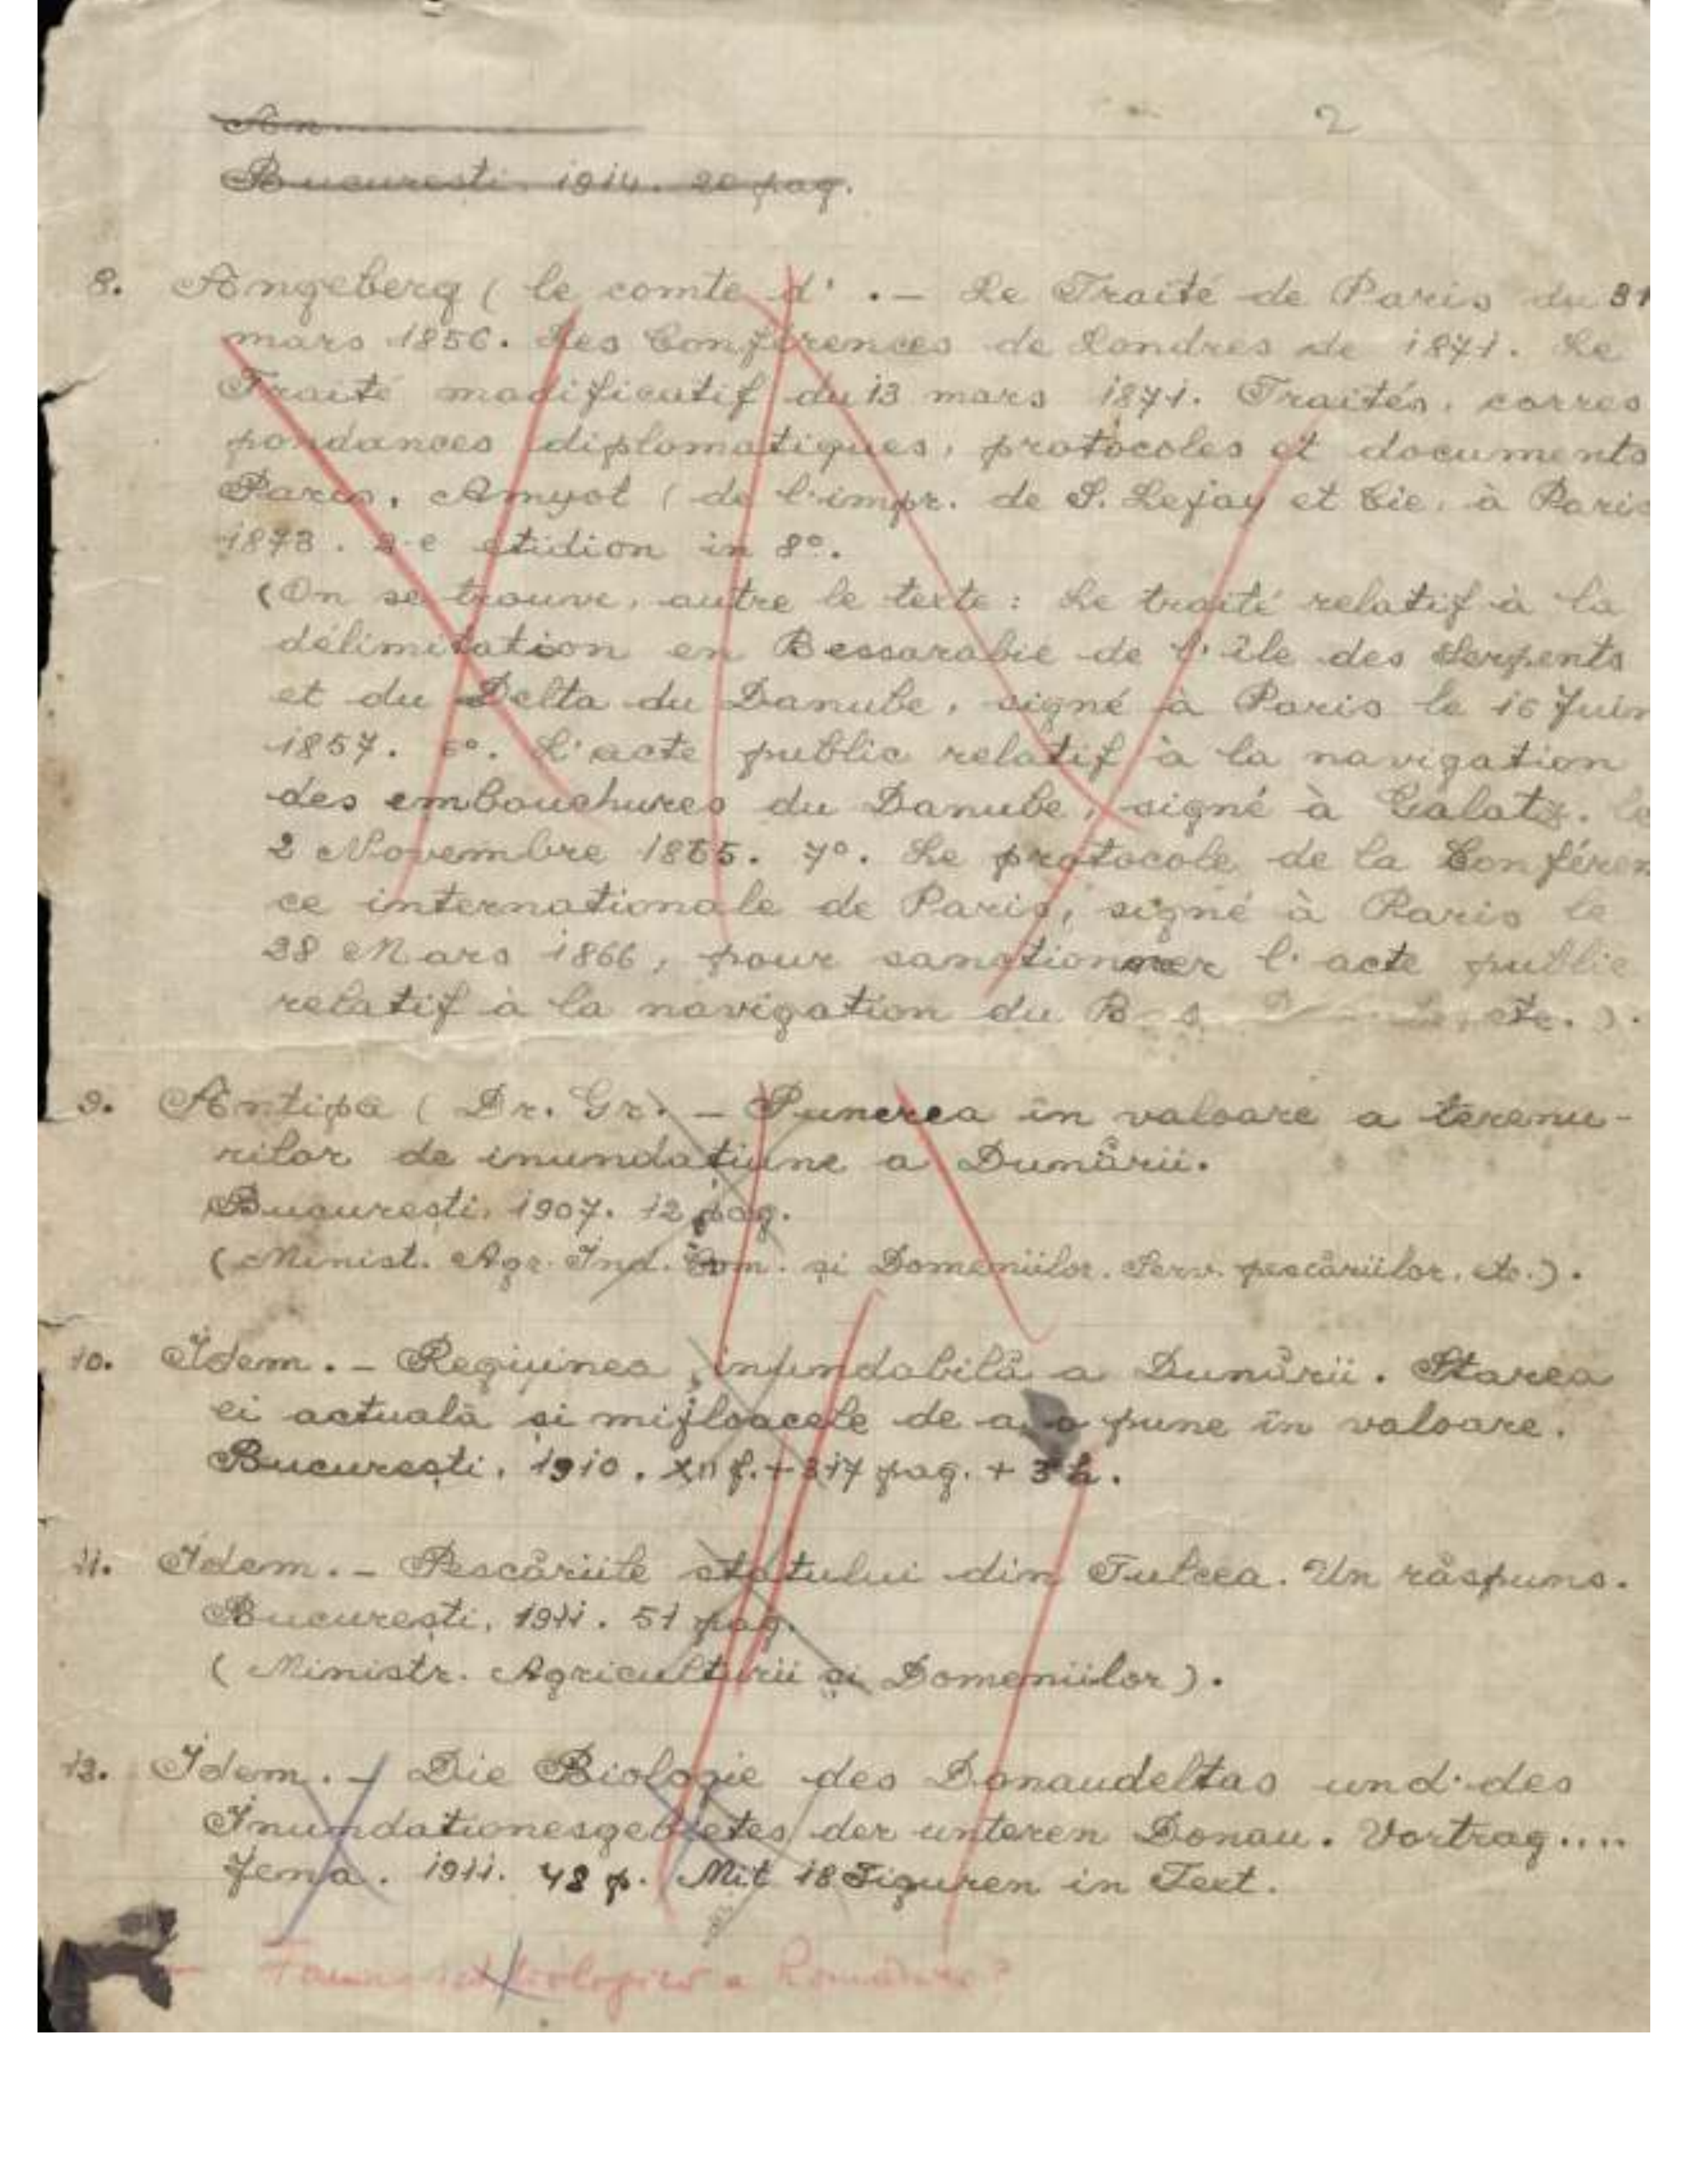 An
2
București. 1914. 20 pag.
8. Angeberg ( le comte d' .— Le Traité de Paris du 31
mars 1856. Les Conférences de Londres de 1871. Le
Traité modificatif du 13 mars 1871. Traités, corres
pondances diplomatiques, protocoles et documents
Paris, Amyot ( de l'impr. de S. Lejay et Cie, à Paris
1873. 2-e etidion in 8°.
(On se trouve, autre le texte: Le traité relatif à la
délimitation en Bessarabie de l'île des Serpents
et du Delta du Danube, signé à Paris le 16 Juin
1857. 6°. L'acte public relatif à la navigation
des embouchures du Danube, signé à Galatz. le
2 Novembre 1865. 7°. Le protocole de la Conféren
ce internationale de Paris, signé à Paris le
28 Mars 1866, pour sanctionner l'acte public
relatif à la navigation du etc. ).
9. Antipa ( Dr. Gr. — Punerea în valoare a terenu-
rilor de inundațiune a Dunării.
București, 1907. 12 pag.
( Minist. Agr. Ind. Com. și Domeniilor. Serv. pescăriilor, etc.).
10. Idem. — Regiunea inundabilă a Dunării. Starea
ei actuală și mijloacele de a o pune în valoare.
București, 1910. XII f. + 317 pag. + 3 h.
11. Idem. — Pescăriile statului din Tulcea. Un răspuns.
București, 1911. 51 pag.
( Ministr. Agriculturii și Domeniilor ).
12. Idem. — Die Biologie des Donaudeltas und des
Inundationesgebietes der unteren Donau. Vortrag....
Jena. 1911. 48 p. Mit 18 Figuren in Text.
— Fauna a României